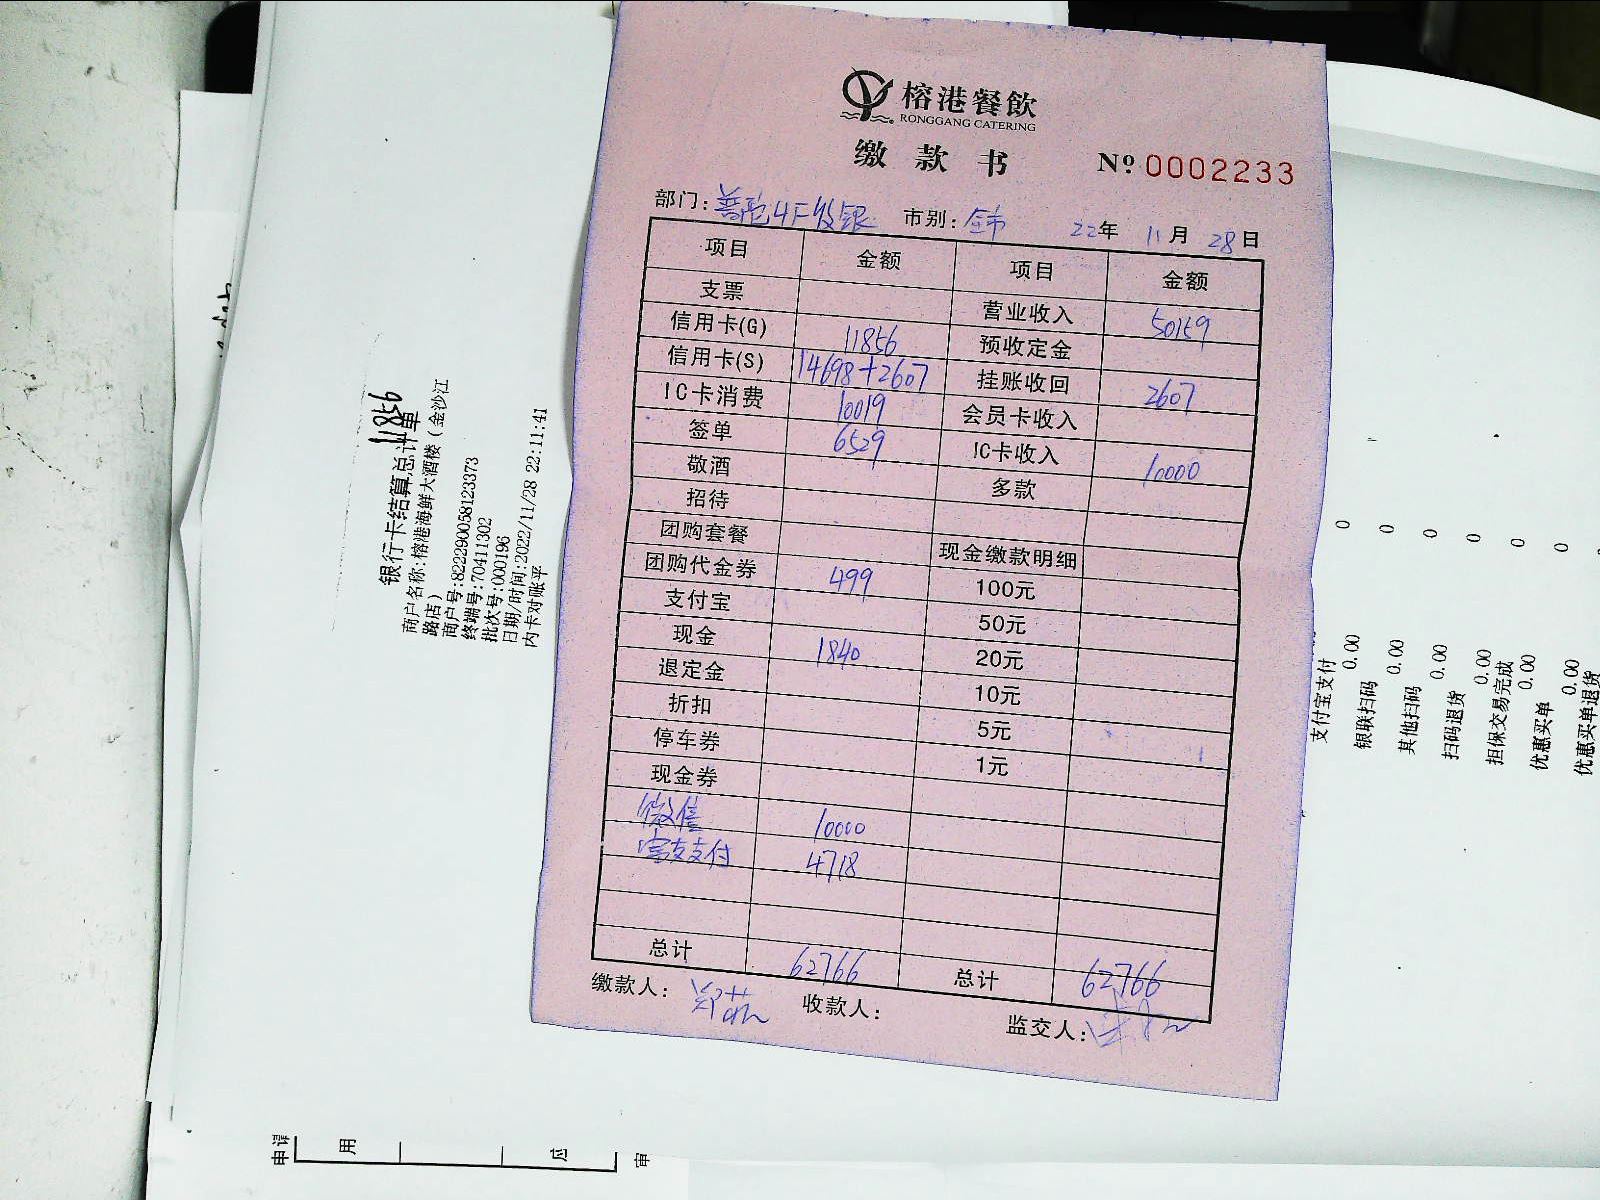 榕港餐飲
RONGGANG CATERING
缴款书 Nº 0002233
部门: 普陀4F收银 市别: 全市 22年 11月 28日
项目 金额 项目 金额
支票 营业收入 50159
信用卡(G) 11856 预收定金
信用卡(S) 14698+2607 挂账收回 2607
IC卡消费 10019 会员卡收入
签单 6529 IC卡收入 10000
敬酒 多款
招待
团购套餐 现金缴款明细
团购代金券 499 100元
支付宝 50元
现金 1840 20元
退定金 10元
折扣 5元
停车券 1元
现金券
微信 10000
支付 4718
总计 62766 总计 62766
缴款人: 收款人: 监交人:
11856
银行卡结算总计单
商户名称:榕港海鲜大酒楼(金沙江
路店)
商户号:822290058123373
终端号:70411302
批次号:000196
日期/时间:2022/11/28 22:11:41
内卡对账平
支付宝支付
0.00 0
银联扫码
0.00 0
其他扫码
0.00 0
扫码退货
0.00 0
担保交易完成
0.00 0
优惠买单
0.00 0
优惠买单退货
申请
用
审